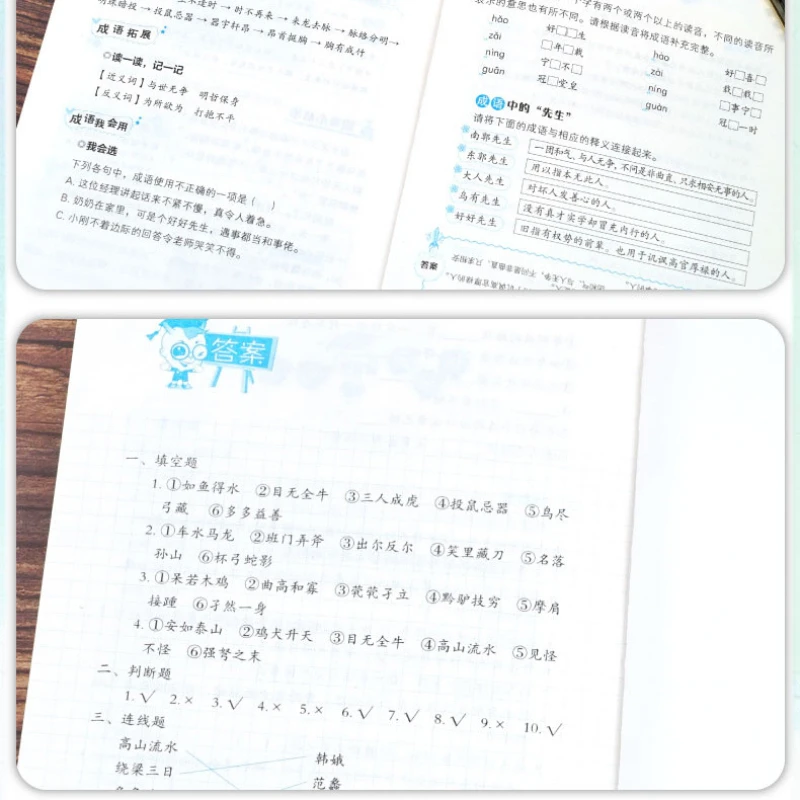 明珠暗投→投鼠忌器→器宇轩昂→昂首挺胸→胸有成竹
时不再来→来龙去脉→脉络分明→
成语拓展
◎读一读，记一记
【近义词】与世无争 明哲保身
【反义词】为所欲为 打抱不平
成语我会用
◎我会选
下列各句中，成语使用不正确的一项是（ ）
A. 这位经理讲起话来不紧不慢，真令人着急。
B. 奶奶在家里，可是个好好先生，遇事都当和事佬。
C. 小刚不着边际的回答令老师哭笑不得。
字有两个或两个以上的读音，不同的读音所
表示的意思也有所不同。请根据读音将成语补充完整。
hǎo 好□□生 hào 好□喜□
zǎi □年□载 zài 载□载□
níng 宁□不□ nìng □事宁□
guān 冠□堂皇 guàn 冠□一时
成语中的“先生”
请将下面的成语与相应的释义连接起来。
南郭先生 一团和气，与人无争，不问是非曲直，只求相安无事的人。
东郭先生 用以指本无此人。
大人先生 对坏人发善心的人。
乌有先生 没有真才实学却冒充内行的人。
好好先生 旧指有权势的前辈。也用于讥讽高官厚禄的人。
答案
答案
一、填空题
1. ①如鱼得水 ②目无全牛 ③三人成虎 ④投鼠忌器 ⑤鸟尽
弓藏 ⑥多多益善
2. ①车水马龙 ②班门弄斧 ③出尔反尔 ④笑里藏刀 ⑤名落
孙山 ⑥杯弓蛇影
3. ①呆若木鸡 ②曲高和寡 ③茕茕孑立 ④黔驴技穷 ⑤摩肩
接踵 ⑥孑然一身
4. ①安如泰山 ②鸡犬升天 ③目无全牛 ④高山流水 ⑤见怪
不怪 ⑥强弩之末
二、判断题
1.√ 2.× 3.√ 4.× 5.× 6.√ 7.√ 8.√ 9.× 10.√
三、连线题
高山流水
韩娥
绕梁三日
范蠡